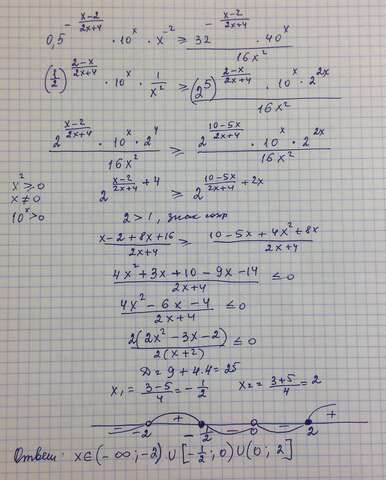 0,5^{-\frac{x-2}{2x+4}} · 10^x · x^{-2} ≥ \frac{32^{-\frac{x-2}{2x+4}} · 40^x}{16x^2}
(\frac{1}{2})^{\frac{2-x}{2x+4}} · 10^x · \frac{1}{x^2} ≥ \frac{(2^5)^{\frac{2-x}{2x+4}} · 10^x · 2^{2x}}{16x^2}
\frac{2^{\frac{x-2}{2x+4}} · 10^x · 2^4}{16x^2} ≥ \frac{2^{\frac{10-5x}{2x+4}} · 10^x · 2^{2x}}{16x^2}
x^2 ≥ 0
x ≠ 0
10^x > 0
2^{\frac{x-2}{2x+4}+4} ≥ 2^{\frac{10-5x}{2x+4}+2x}
2 > 1, знак сохр
\frac{x-2+8x+16}{2x+4} ≥ \frac{10-5x+4x^2+8x}{2x+4}
\frac{4x^2+3x+10-9x-14}{2x+4} ≤ 0
\frac{4x^2-6x-4}{2x+4} ≤ 0
\frac{2(2x^2-3x-2)}{2(x+2)} ≤ 0
D = 9 + 4·4 = 25
x_1 = \frac{3-5}{4} = -\frac{1}{2} x_2 = \frac{3+5}{4} = 2
- + - - +
-2 -\frac{1}{2} 0 2
Ответ: x ∈ (-∞; -2) ∪ [-\frac{1}{2}; 0) ∪ (0; 2]